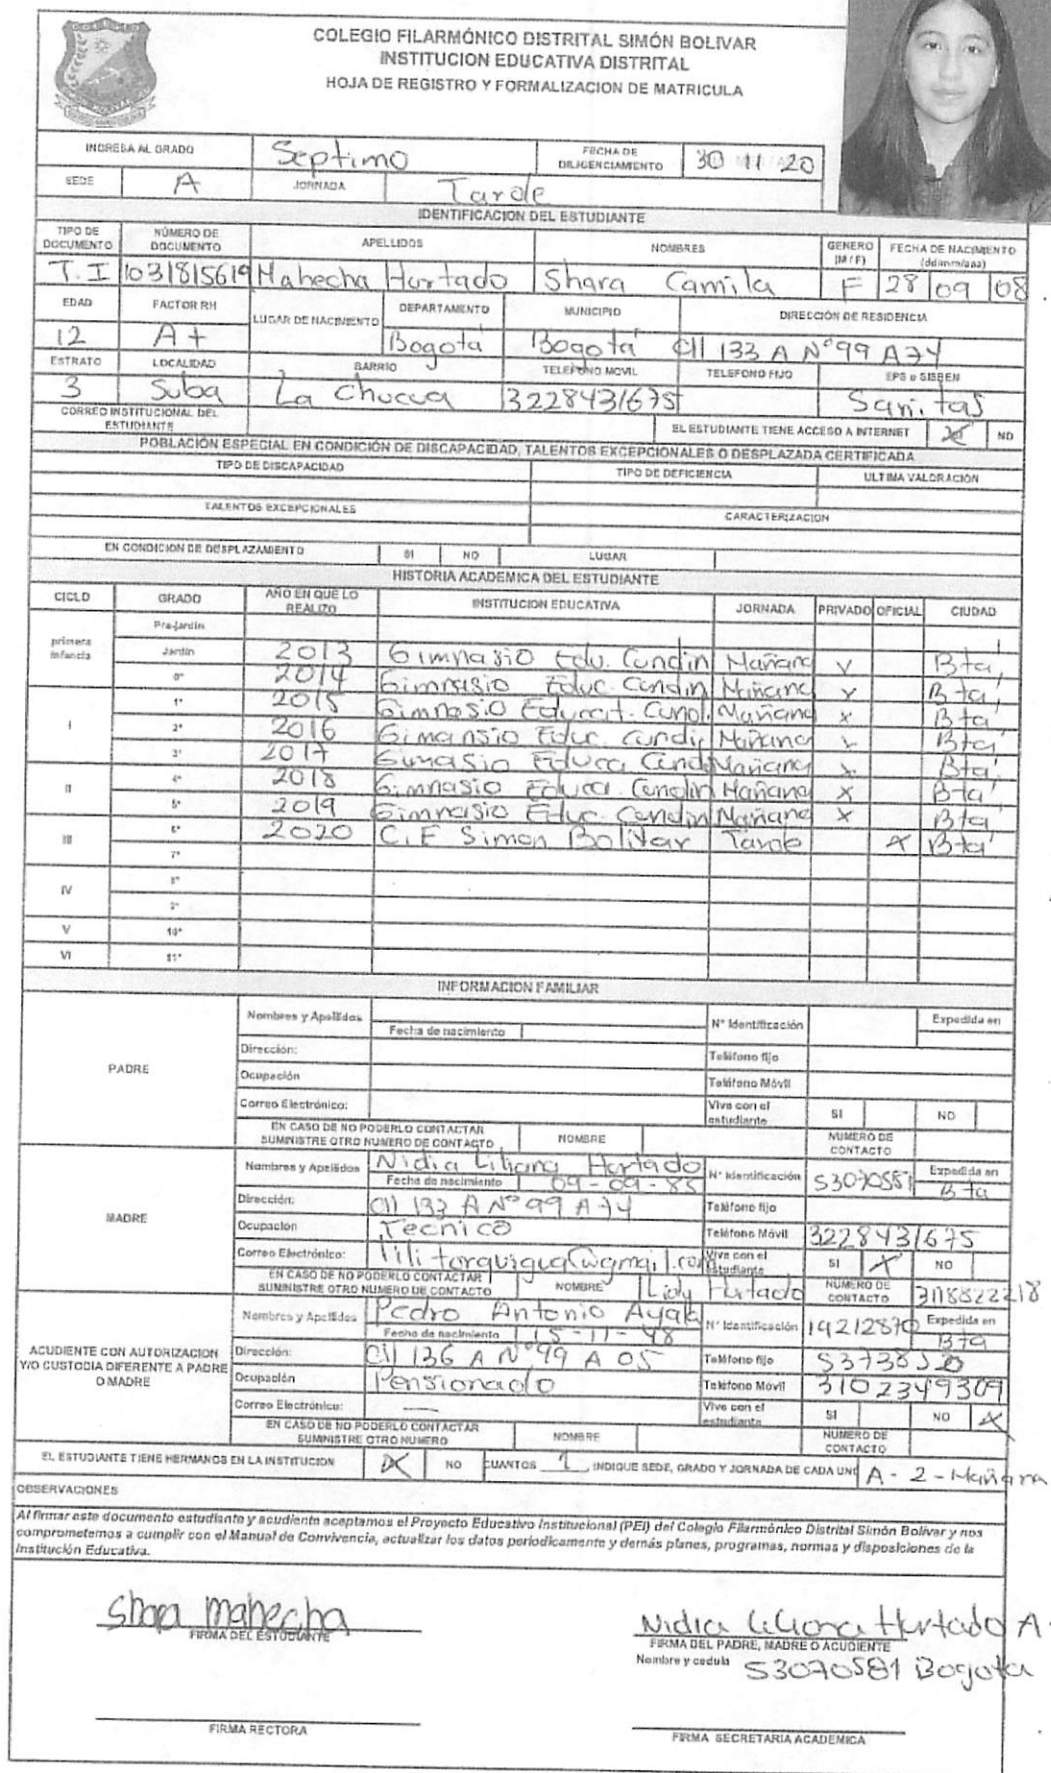 COLEGIO FILARMÓNICO DISTRITAL SIMÓN BOLIVAR
INSTITUCION EDUCATIVA DISTRITAL
HOJA DE REGISTRO Y FORMALIZACION DE MATRICULA
INGRESA AL GRADO Septimo FECHA DE DILIGENCIAMIENTO 30 11 20
SEDE A JORNADA Tarde
IDENTIFICACION DEL ESTUDIANTE
TIPO DE DOCUMENTO NÚMERO DE DOCUMENTO APELLIDOS NOMBRES GENERO (M / F) FECHA DE NACIMIENTO (dd/mm/aaa)
T.I 1031815619 Mahecha Hurtado Shara Camila F 28 09 08
EDAD FACTOR RH LUGAR DE NACIMIENTO DEPARTAMENTO MUNICIPIO DIRECCIÓN DE RESIDENCIA
12 A+ Bogotá Bogotá Cll 133 A N° 99 A 74
ESTRATO LOCALIDAD BARRIO TELEFONO MOVIL TELEFONO FIJO EPS o SISBEN
3 Suba La Chucua 3228431675 Sanitas
CORREO INSTITUCIONAL DEL ESTUDIANTE EL ESTUDIANTE TIENE ACCESO A INTERNET X NO
POBLACIÓN ESPECIAL EN CONDICIÓN DE DISCAPACIDAD, TALENTOS EXCEPCIONALES O DESPLAZADA CERTIFICADA
TIPO DE DISCAPACIDAD TIPO DE DEFICIENCIA ULTIMA VALORACIÓN
TALENTOS EXCEPCIONALES CARACTERIZACION
EN CONDICION DE DESPLAZAMIENTO SI NO LUGAR
HISTORIA ACADEMICA DEL ESTUDIANTE
CICLO GRADO AÑO EN QUE LO REALIZO INSTITUCION EDUCATIVA JORNADA PRIVADO OFICIAL CIUDAD
primera infancia Pre-jardín
Jardín 2013 Gimnasio Edu. Cundin Mañana x Bta
0° 2014 Gimnasio Educ. Cundin Mañana x Bta
I 1° 2015 Gimnasio Educat. Cund. Mañana x Bta
2° 2016 Gimansio Educ. Cundi Mañana x Bta
3° 2017 Gimasio Educa Cund Mañana x Bta
II 4° 2018 Gimnasio Educa. Cundin Mañana x Bta
5° 2019 Gimnasio Educ. Cundin Mañana x Bta
III 6° 2020 C.E Simon Bolivar Tarde x Bta
7°
IV 8°
9°
V 10°
VI 11°
INFORMACION FAMILIAR
PADRE
Nombres y Apellidos N° Identificación Expedida en
Fecha de nacimiento
Dirección: Teléfono fijo
Ocupación Teléfono Móvil
Correo Electrónico: Vive con el estudiante SI NO
EN CASO DE NO PODERLO CONTACTAR SUMINISTRE OTRO NUMERO DE CONTACTO NOMBRE NUMERO DE CONTACTO
MADRE
Nombres y Apellidos Nidia Liliana Hurtado N° Identificación 53070581 Expedida en Bta
Fecha de nacimiento 09-09-85
Dirección: Cll 133 A N° 99 A 74 Teléfono fijo
Ocupación Tecnico Teléfono Móvil 3228431675
Correo Electrónico: Vive con el estudiante SI X NO
EN CASO DE NO PODERLO CONTACTAR SUMINISTRE OTRO NUMERO DE CONTACTO NOMBRE Lidy Hurtado NUMERO DE CONTACTO 3118822218
ACUDIENTE CON AUTORIZACION Y/O CUSTODIA DIFERENTE A PADRE O MADRE
Nombres y Apellidos Pedro Antonio Ayala N° Identificación 19212870 Expedida en Bta
Fecha de nacimiento 15-11-48
Dirección: Cll 136 A N° 99 A 05 Teléfono fijo
Ocupación Pensionado Teléfono Móvil 3102349309
Correo Electrónico: — Vive con el estudiante SI NO X
EN CASO DE NO PODERLO CONTACTAR SUMINISTRE OTRO NUMERO NOMBRE NUMERO DE CONTACTO
EL ESTUDIANTE TIENE HERMANOS EN LA INSTITUCION X NO CUANTOS 1 INDIQUE SEDE, GRADO Y JORNADA DE CADA UNO A - 2 - Mañana
OBSERVACIONES
Al firmar este documento estudiante y acudiente aceptamos el Proyecto Educativo Institucional (PEI) del Colegio Filarmónico Distrital Simón Bolívar y nos
comprometemos a cumplir con el Manual de Convivencia, actualizar los datos periodicamente y demás planes, programas, normas y disposiciones de la
Institución Educativa.
Shara Mahecha Nidia Liliana Hurtado A.
FIRMA DEL ESTUDIANTE FIRMA DEL PADRE, MADRE O ACUDIENTE
Nombre y cedula 53070581 Bogota
FIRMA RECTORA FIRMA SECRETARIA ACADEMICA